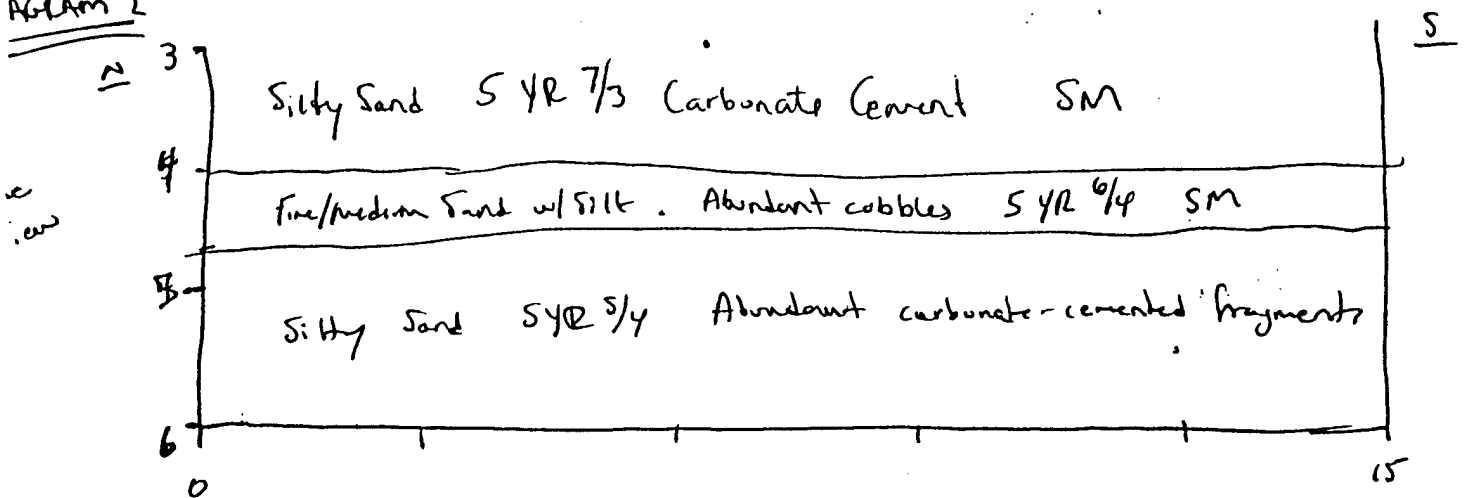 AGRAM 2
N
S
3
Silty Sand 5 YR 7/3 Carbonate Cement SM
4
Fine/medium Sand w/ Silt. Abundant cobbles 5 YR 6/4 SM
5
Silty Sand 5YR 5/4 Abundant carbonate-cemented fragments
6
0
15